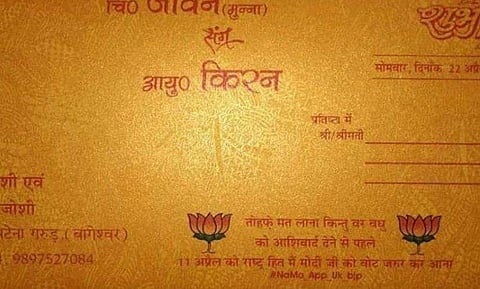 चि० जीवन (मुन्ना)
संग
आयु० किरन
शुभ
सोमवार, दिनांक 22 अप्रै
प्रतिष्ठा में
श्री/श्रीमती
शी एवं
जोशी
गरुड़ (बागेश्वर)
9897527084
तोहफे मत लाना किन्तु वर वधु
को आशिर्वाद देने से पहले
11 अप्रैल को राष्ट्र हित में मोदी जी को वोट जरुर कर आना
#NaMo_App_Uk bjp